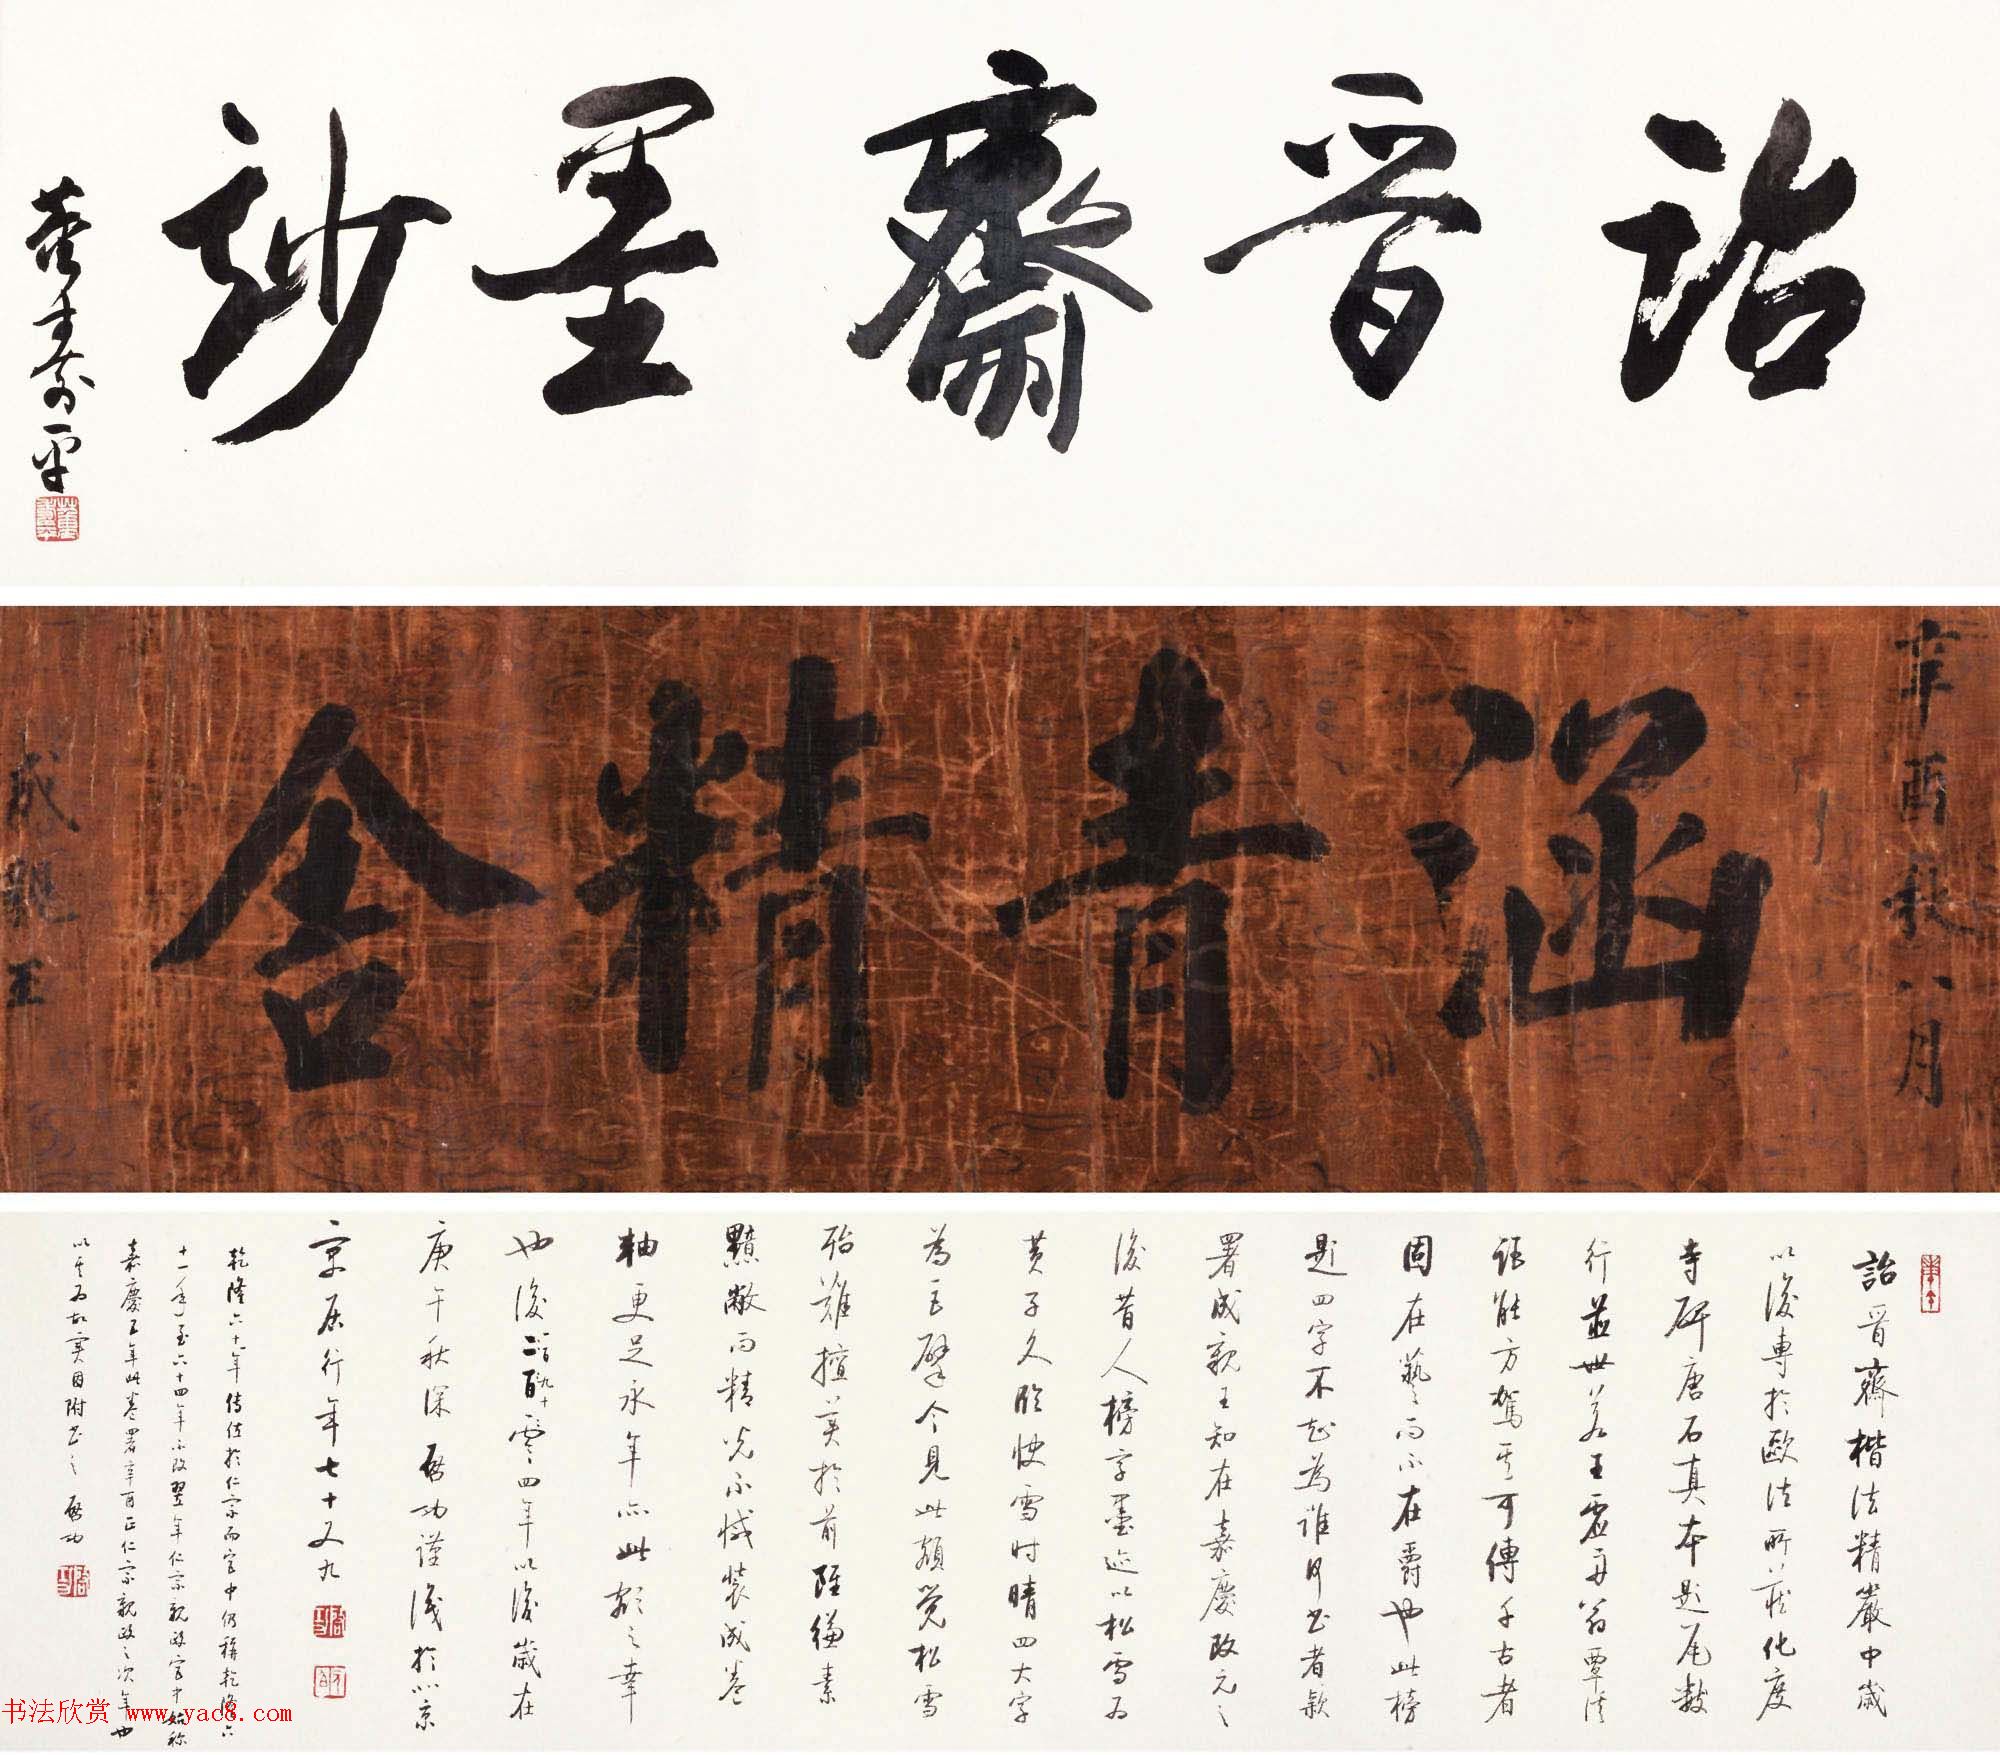 詒晋齋墨妙
董壽平
辛酉秋八月
涵青精舍
成親王
詒晋齋楷法精嚴中歲
以後專於歐法所藏化度
寺碑唐石真本題尾數
行並世若王虚舟翁覃溪
詎能方駕其可傳千古者
固在藝而不在爵也此榜
題四字不起為誰何書者款
署成親王知在嘉慶改元之
後昔人榜字墨迹以松雪為
黃子久臨快雪時晴四大字
為巨擘今見此顏覺松雪
殆難擅美於前雖縑素
黯敝而精光不減裝成卷
軸更足永年亦此顏之幸
也後一百九十四年以後歲在
庚午秋深啟功謹識於北京
寓居行年七十又九
乾隆六十年傳位於仁宗而宫中仍稱乾隆六
十一年至六十四年不改翌年仁宗親政宫中始称
嘉慶五年此卷署辛酉正仁宗親政之次年也
以其为故實因附書之 啟功
书法欣赏 www.yac8.com